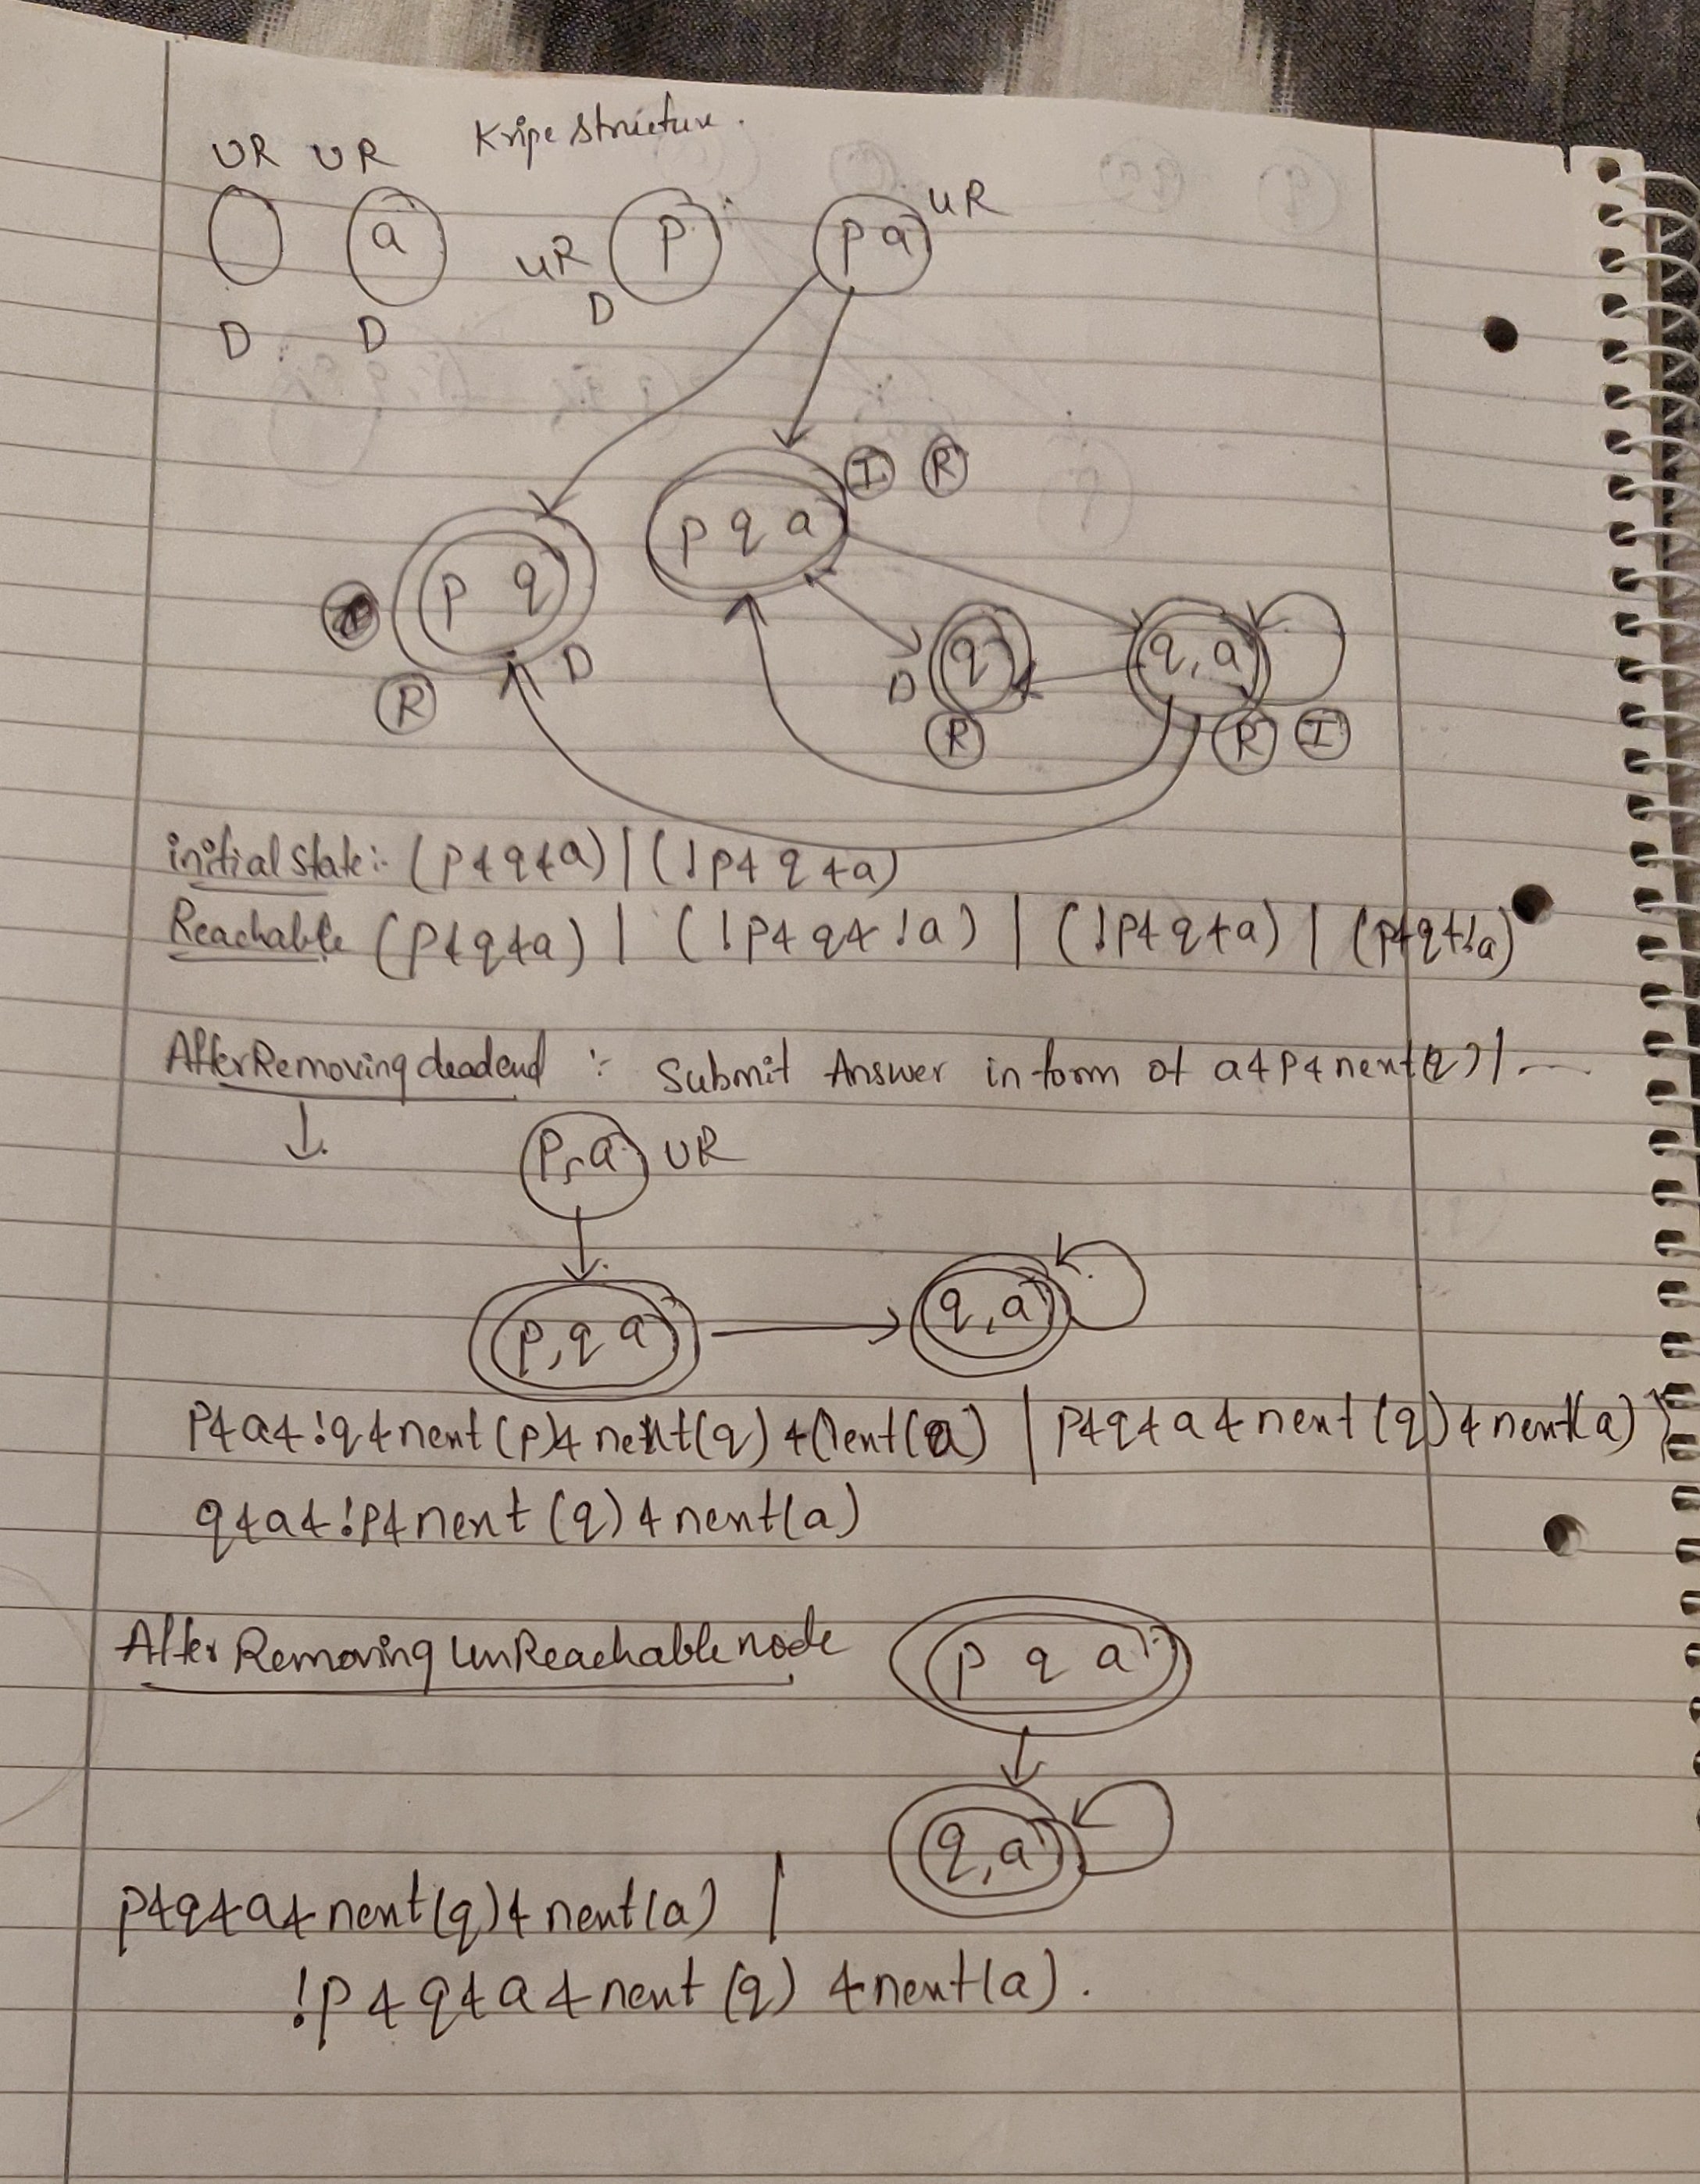 Kripe structure.
UR UR
a
p
p a
UR
UR
D
D
D
I R
p q a
p q
q
q, a
D
D
R
R
R I
initial state:- (p & q & a) | (!p & q & a)
Reachable (p & q & a) | (!p & q & !a) | (!p & q & a) | (p & q & !a)
After Removing deadend :- Submit Answer in form of a & p & next(q) | ....
↓
P, a UR
p, q a
q, a
p & a & !q & next(p) & next(q) & next(a) | p & q & a & next(q) & next(a) |
q & a & !p & next(q) & next(a)
After Removing UnReachable node
p q a
q, a
p & q & a & next(q) & next(a) |
!p & q & a & next(q) & next(a).